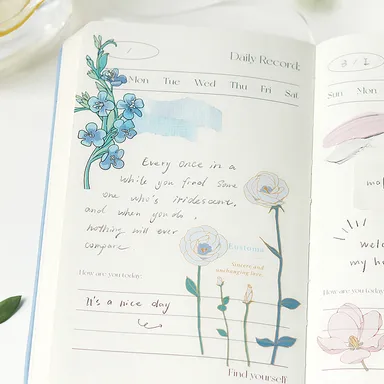 Daily Record:
Mon Tue Wed Thu Fri Sat
Every once in a
while you find some
one who's iridescent,
and when you do,
nothing will ever
compare
Eustoma
Sincere and
unchanging love
How are you today:
It's a nice day
Find yourself
Sun Mon
wel
my h
How are you today